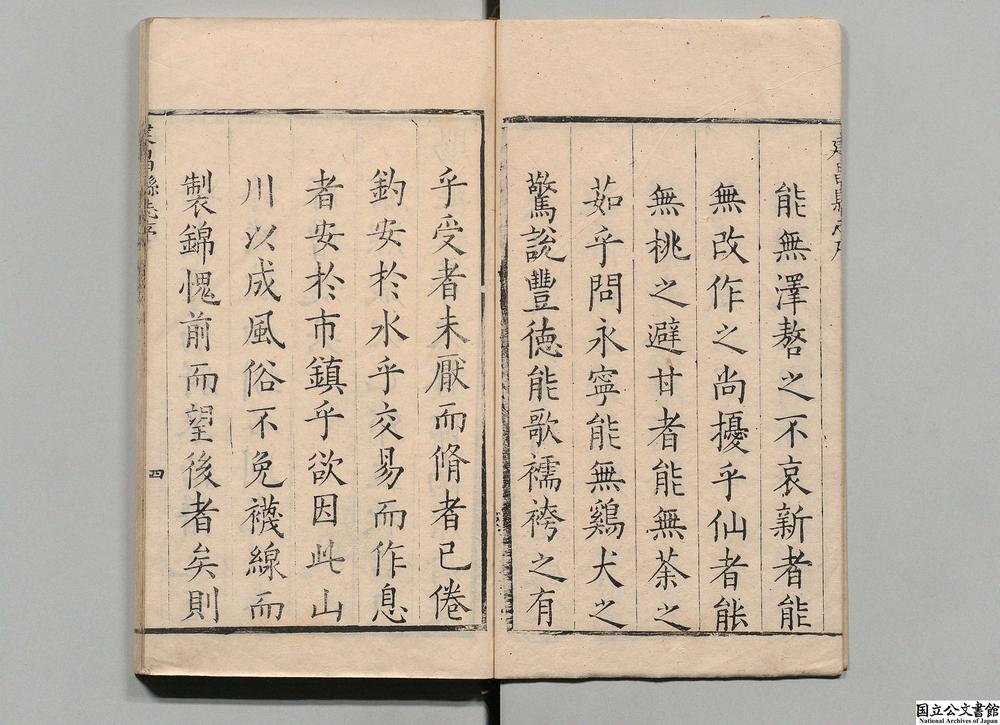 能無澤嗸之不哀新者能
無改作之尚擾乎仙者能
無桃之避甘者能無荼之
茹乎問永寧能無鷄犬之
驚說豐徳能歌襦袴之有
乎受者未厭而脩者已倦
釣安於水乎交易而作息
者安於市鎮乎欲因此山
川以成風俗不免襪線而
製錦愧前而望後者矣則
四
建昌縣志序
国立公文書館
National Archives of Japan